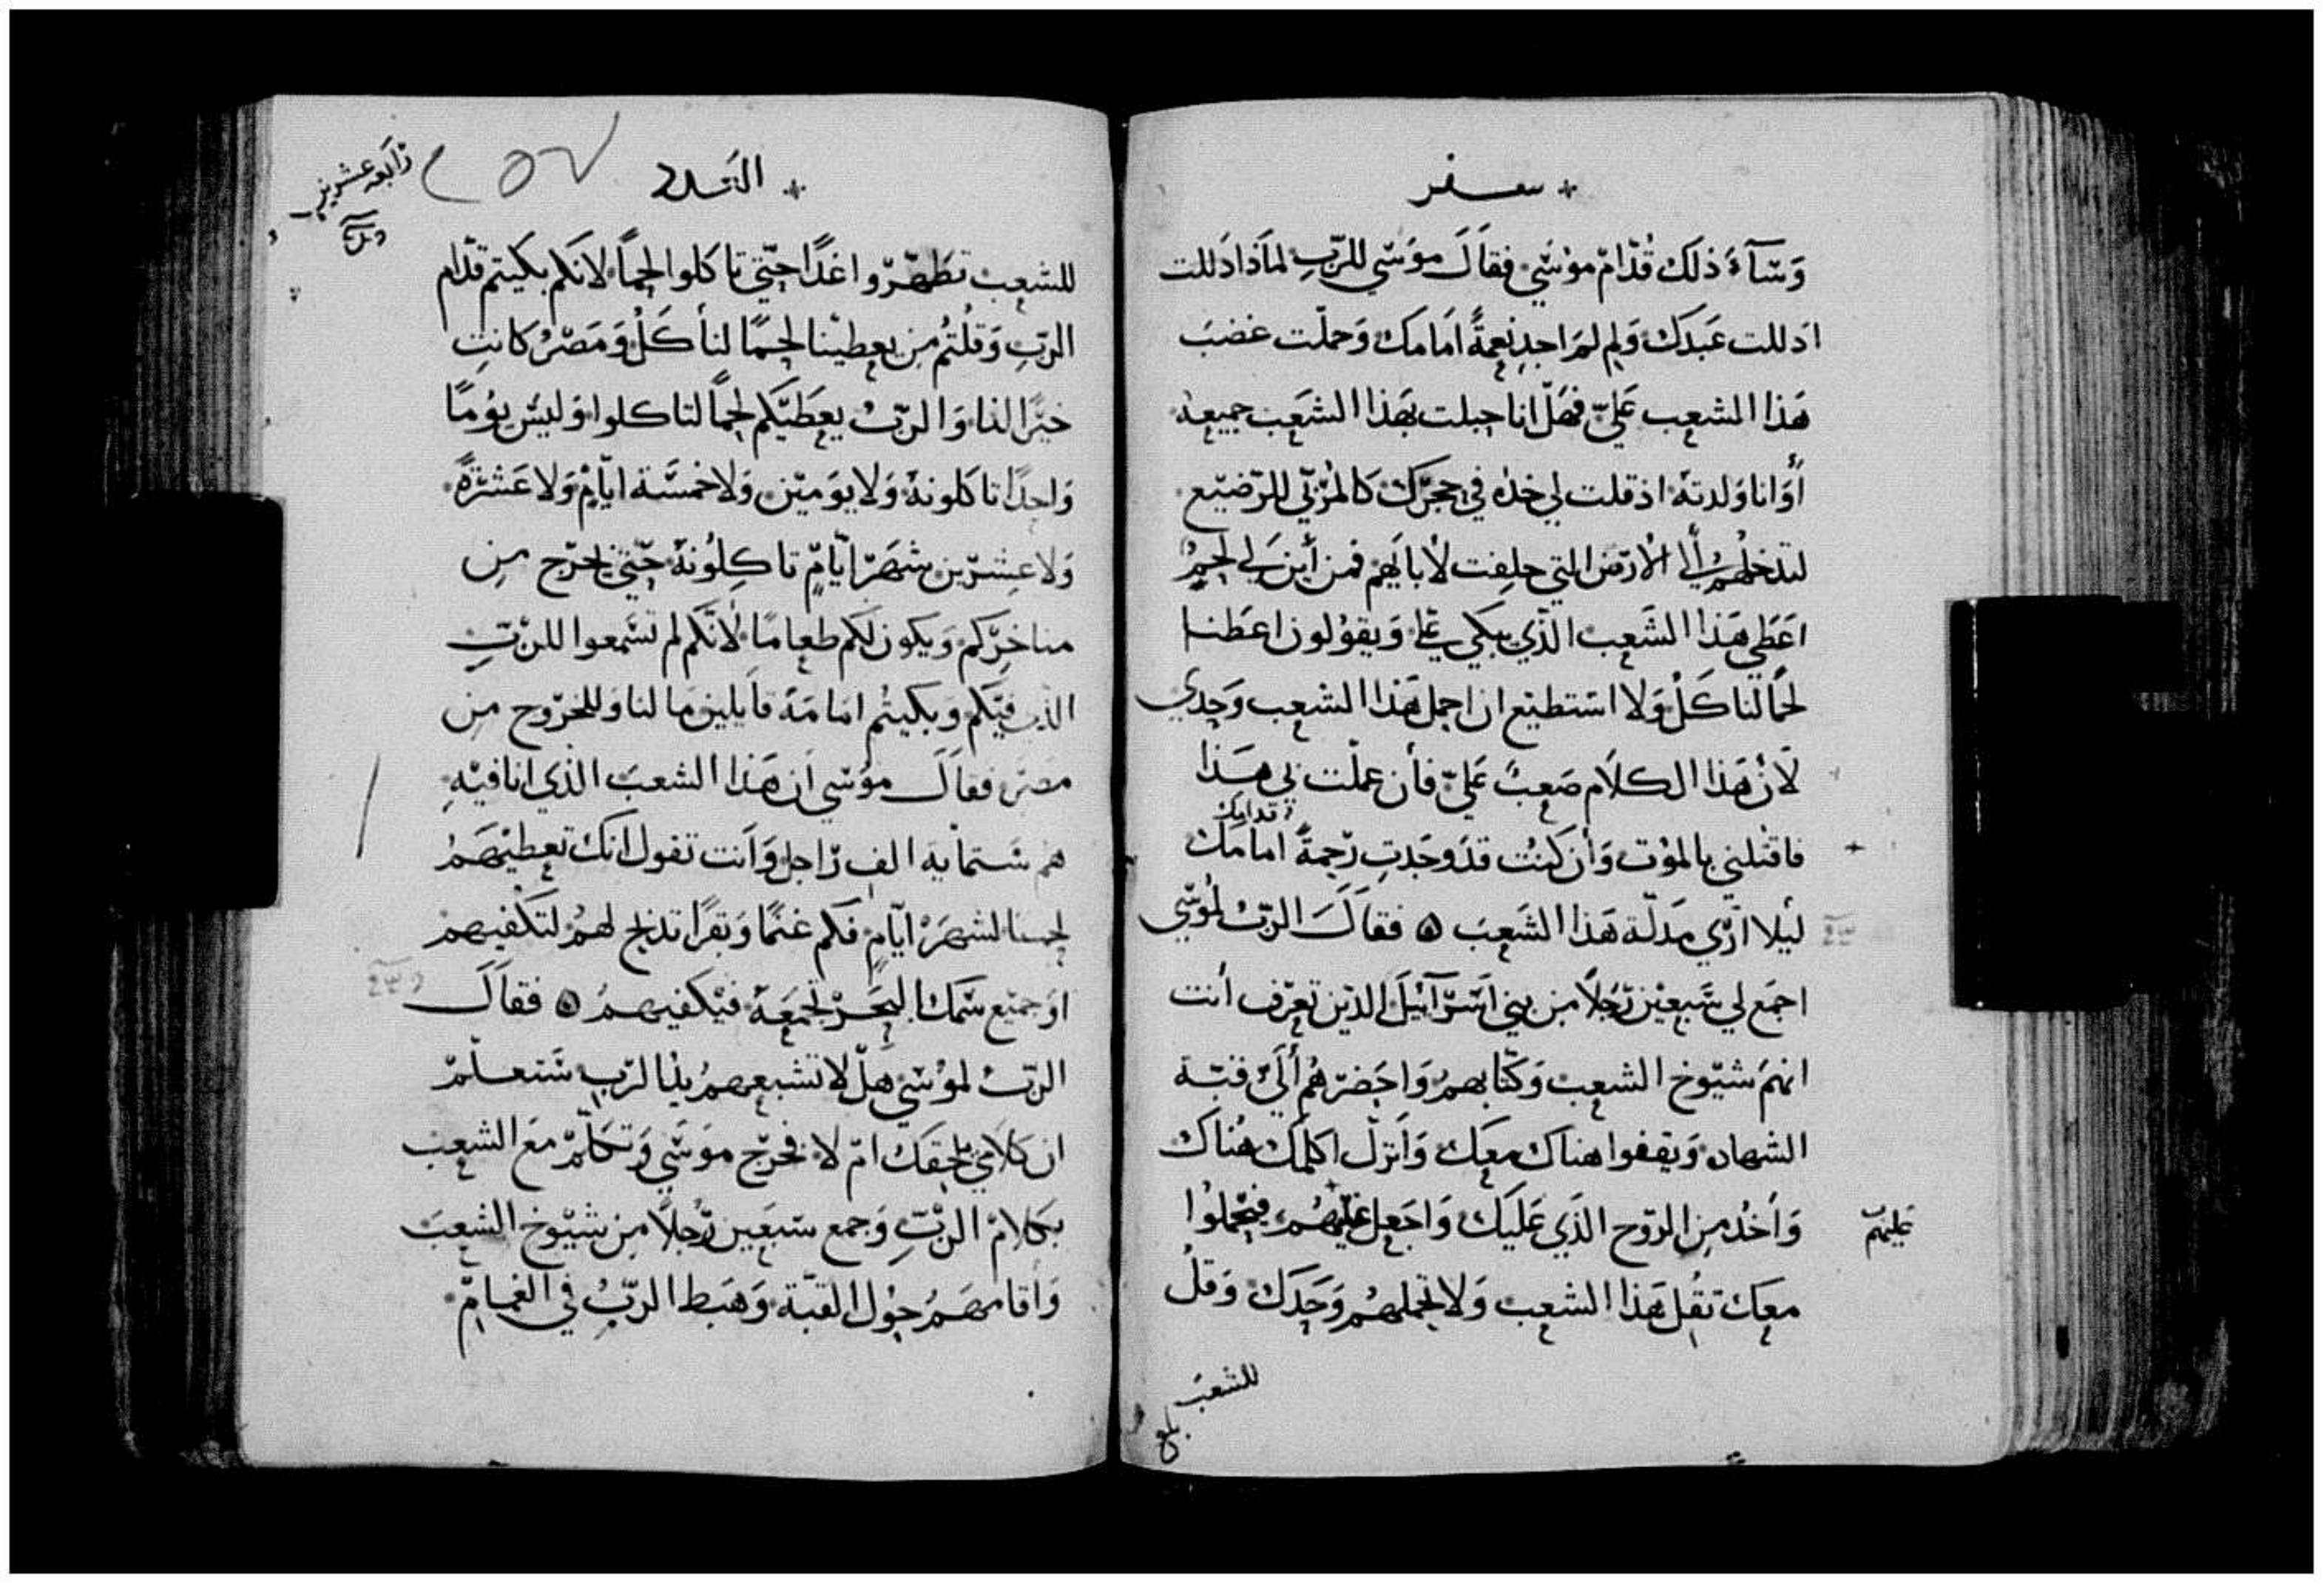 سفر
وَسَآءَ ذلَك قُدّام موُسَي فقاَلَ موَسَي للرّبِ لماَذا اذَللت
اذللت عَبَدَك وَلِم لمَ اجدِ نِعمةً اَمَامك وَحملّت غضبَ
هَذا الشعب عَليّ فهَلّ انا حبلت بهَذا الشعَب جميعهُ
أَوَانا وَلدتهُ اذ قلت لي خذه في حجرَك كالمُرّبي للرّضيّع
لتدخلُهمُ إلَي الأرّض التي حلِفت لأبايَهم فمن أَين لي لحمٍُ
اعَطي هَذا الشَعب الذّي يبكي عليّ وَيقوُلون اعَطنا
لحمًا لناكَلْ وَلا استطيَع ان احمل هَذا الشعب وَحِدي
لَأنْ هَذا الكلَام صَعِبً عَليّ فأن عملّت بي هَذا
قدامك
فاقتلِني بالموْت وَأن كنُت قدَ وجَدتِ رّحِمةً امامَك
ليَلا ارّي مَدلّة هَذا الشَعبَ ۞ فقاَلَ الرّبُ لموُسّي
اجمَع لي سَبعيْن رّجَلاً من بني اسَرّآئيَل الذيّن تعرّف أنت
انهمَ شيوّخ الشعب وَكتّابهمُ وَاحَضرّهُم ألَيّ قبّة
الشهاده وَيقفوا هناك معَك وَاَنزلّ اكلمَك هُناك
وَاَخُد مِن الرّوح الذَي عَليَك وَاجَعل عَليْهمُ فيحْملوُا
عليهم
معَك تقُل هَذا الشعب وَلا تحملهمُ وَحَدَك وَقلُ
للشعبَ
بلغ
العَدد
٢٥٧
رّابعه عشرين
للشعب تطَهّرّوا غدًا حتّي تاكلوا لحمًا لانَكم بكيتم قدّام
الرّبِ وَقُلتُم مِن يعِطيْنا لحمًا لنأكَلُ وَمَصْرُ كانتِ
خيرًا لنا وَالرّبُ يعِطَيكم لحمًا لتاكلوا وَليسُ يوُمًا
وَاحِدًا تاكلونهُ وَلا يوَميّن وَلا خمسَة ايّامٍ وَلا عَشرّةً
وَلا عِشرّين شهَرّ ايّامٍ تاكِلوُنهُ حتّي يخرّج مِن
مناخِرّكم وَيكون لكم طعامًا لأنَكم لم تسَمعوا للرّبِّ
الذي فيّكم وَبكيتُم امامَهُ قايلين مَا لنا وَللخرّوج مِن
مصَر فقاَلَ موُسَي اَن هَذا الشعبَ الذّي انا فيهِ
هم ستمايةِ الف رّاجل وَاَنت تقول انك تعِطيْهَمُ
لحمًا لشهرَ ايّامٍ فكم غنمًا وَبقرًا تذبح لهمُ لتكفيهمْ
اوَ جميّع سَمك البحرّ تجمعَهُ فيْكفيهمُ ۞ فقاَلَ
الرّبُ لموُسَي هَلّ لا تشبعهمُ يدُ الرّبِ سَتعلمّ
ان كلامي يلحِقكَ امّ لا فخرّج موَسَي وَتكلّمّ معَ الشعب
بكَلامْ الرّبِّ وَجمع سَبعَين رّجُلاً مِن شيوّخ الشعبَ
وَأقامهَمُ حوُل القبّة وَهَبط الرّبُ في الغمامّ